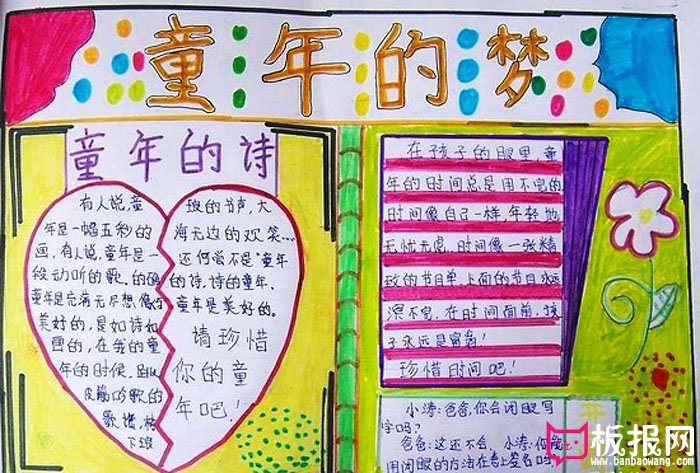 童年的梦
童年的诗
有人说,童
年是一幅五彩的
画,有人说,童年是一
段动听的歌。的确
童年是充满无尽想像
美好的,是如诗如
画的,在我的童
年的时候,
吟歌的
班的书声,大
海无边的欢笑…
还何尝不是童年
的诗,诗的童年、
童年是美好的。
请珍惜
你的童
年吧!
在孩子的眼里,童
年的时间总是用不完的
时间像自己一样,年轻地
无忧无虑,时间像一张精
致的节目单,上面的节目永远
演不完,在时间面前,孩
子永远是富翁!
珍惜时间吧!
小涛:爸爸,你会闭眼写
字吗?
爸爸:这还不会,小涛:你能
用闭眼的方法在卷上签名吗
开
板报网
www.banbaowang.com